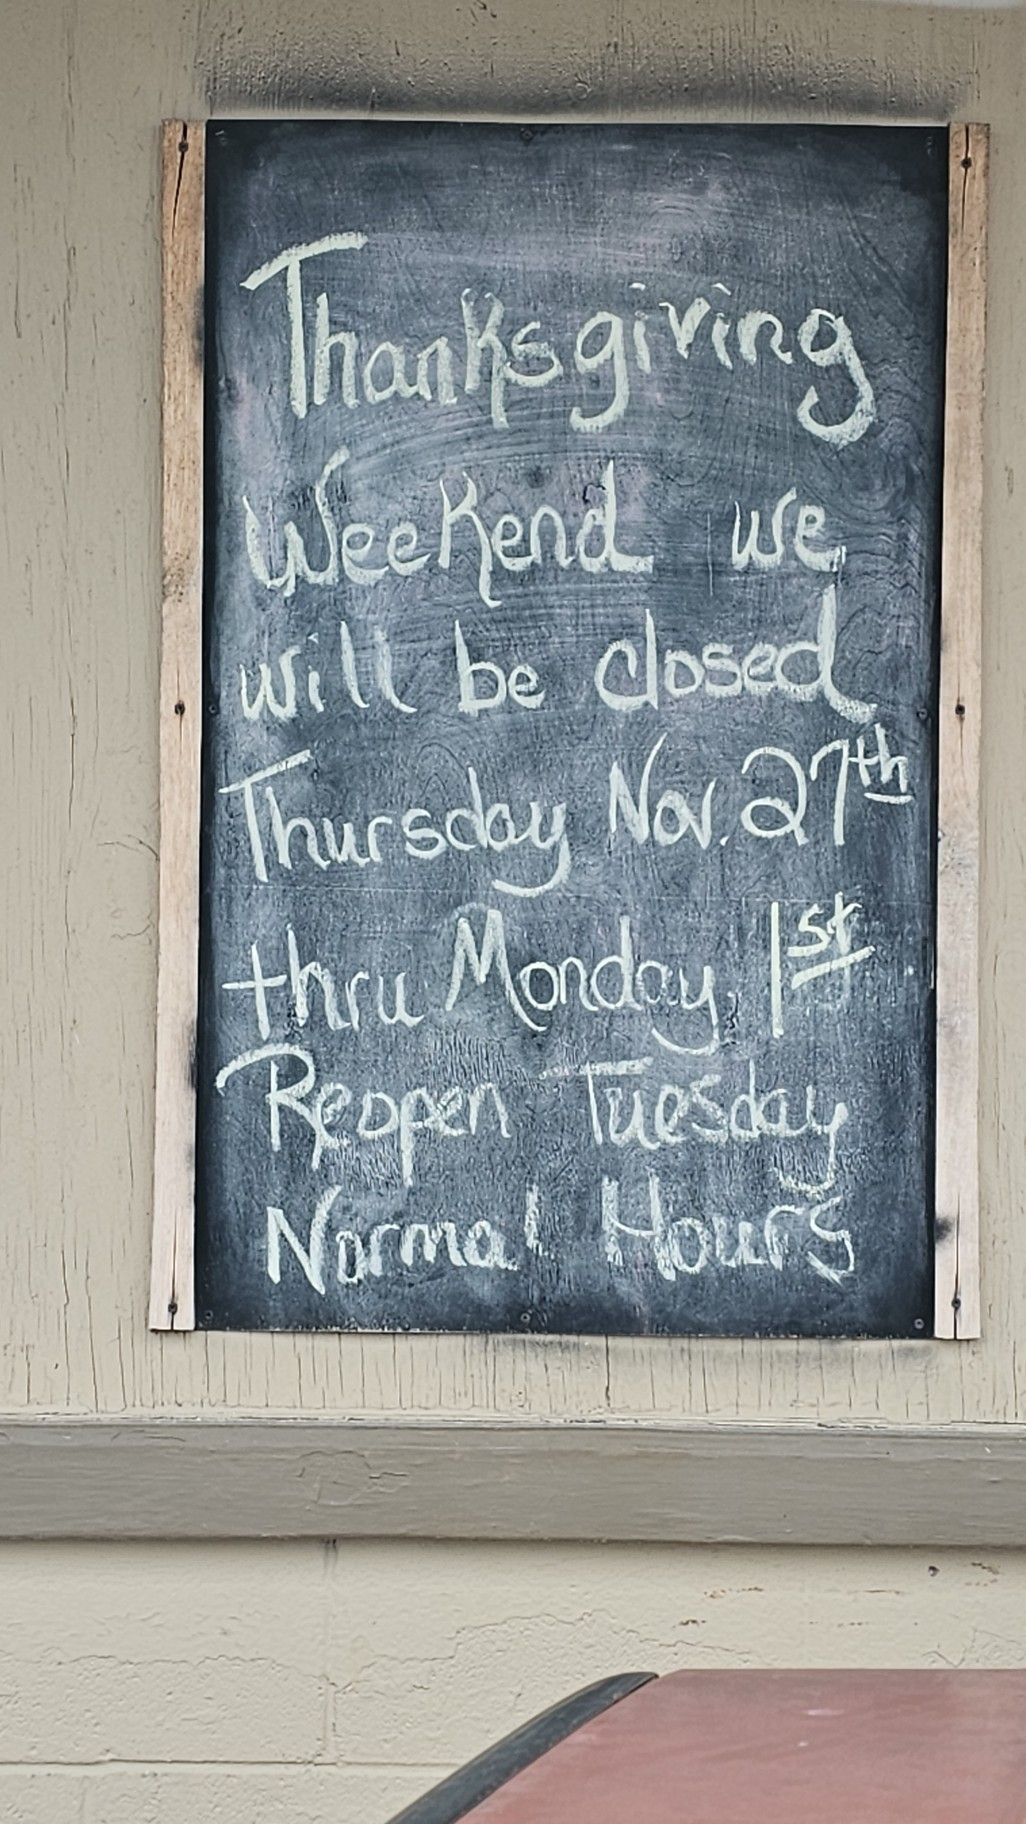 Thanksgiving
Weekend we
will be closed
Thursday Nov. 27th
thru Monday, 1st
Reopen Tuesday
Normal Hours